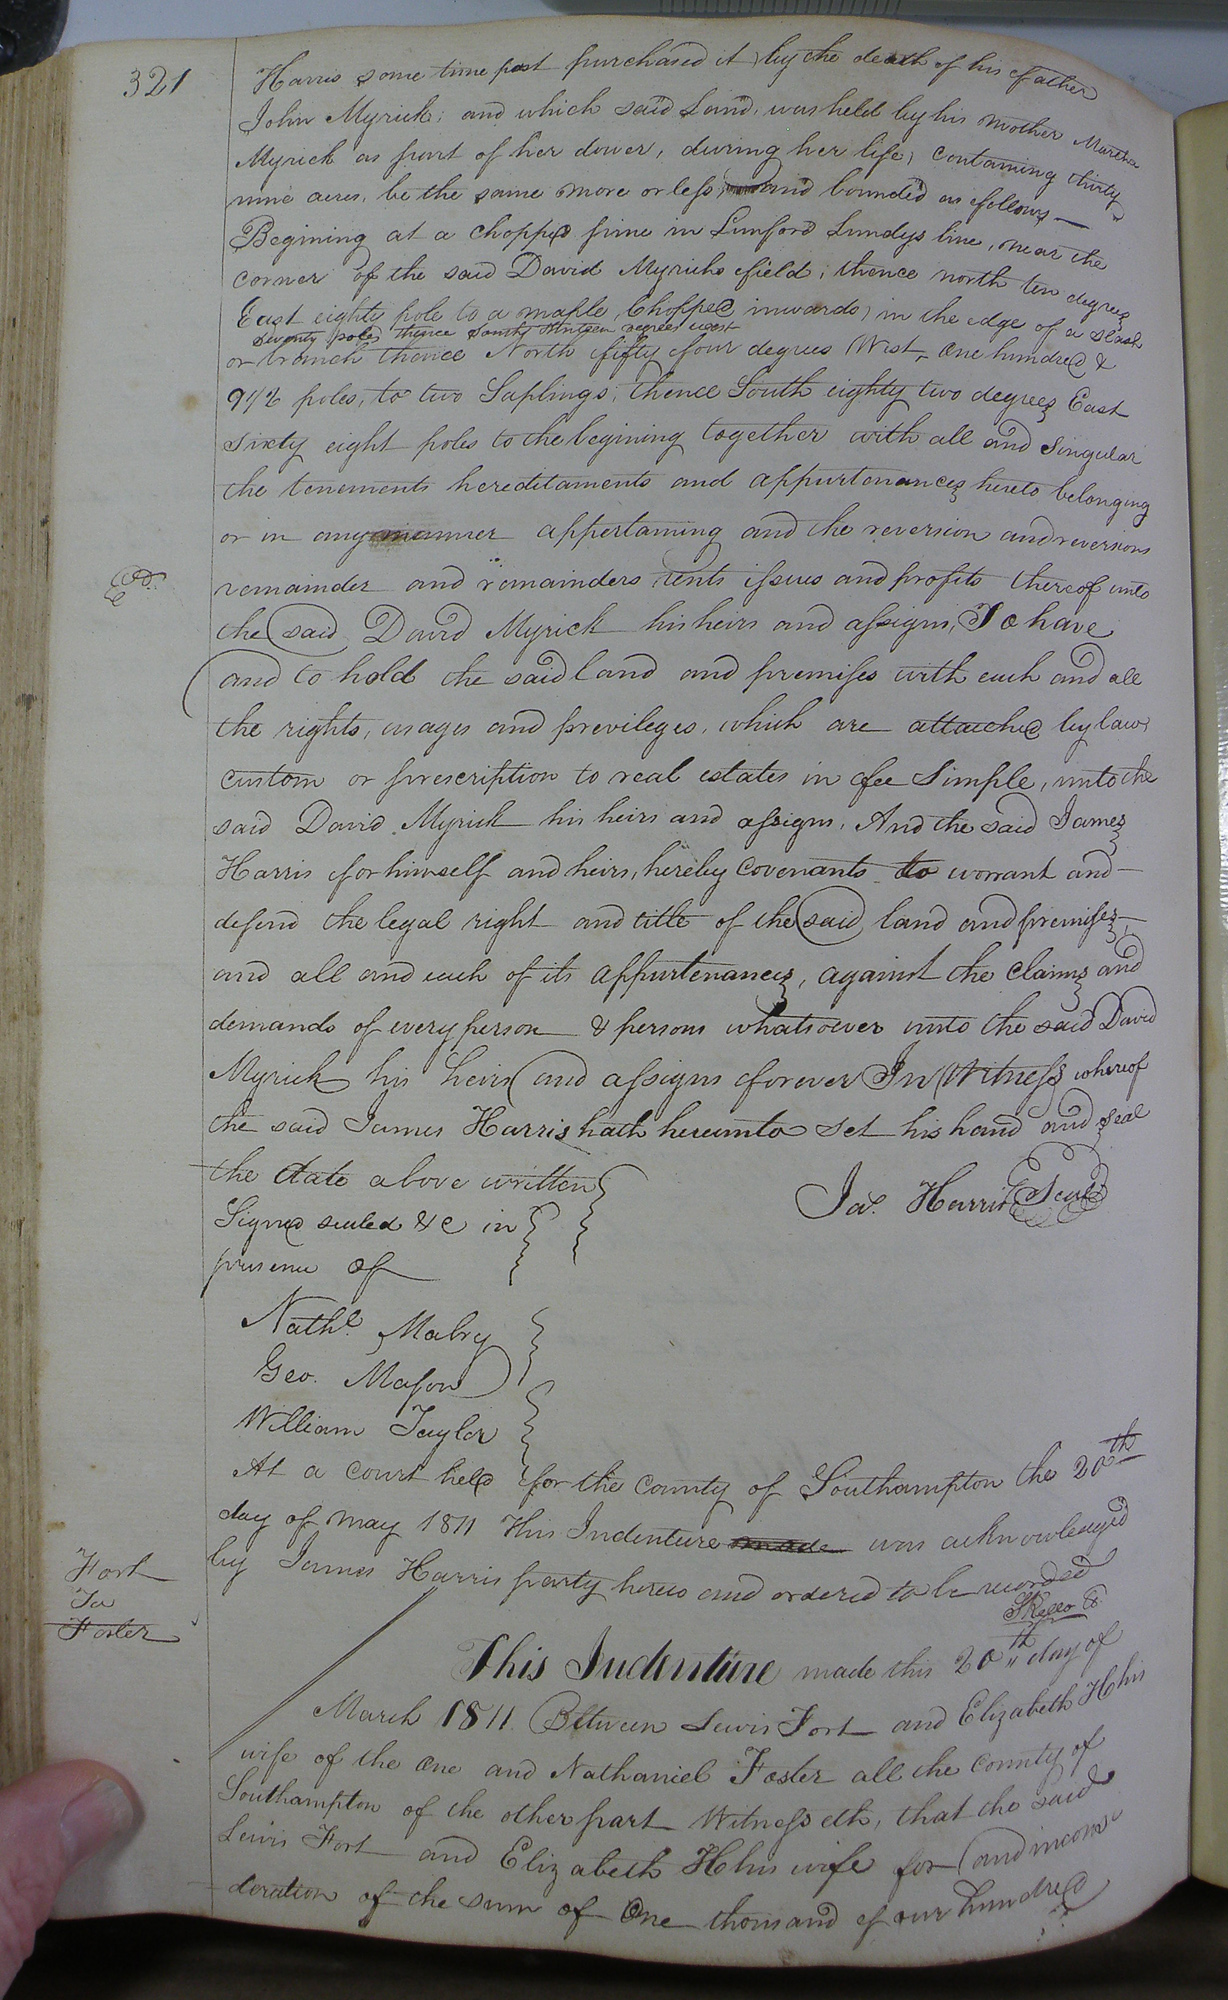 321
Harris some time past purchased it) by the death of his father
John Myrick; and which said Land, was held by his mother Martha
Myrick as part of her dower, during her life, containing thirty
nine acres, be the same more or less, and bounded as follows—
Begining at a chopped pine in Lunford Lundys line, near the
corner of the said David Myricks field; thence north ten degrees
East eighty pole to a maple chopped inwards, in the edge of a slash
seventy poles thence South nineteen degrees west
or branch thence North fifty four degrees West, one hundred &
9 1/2 poles, to two Saplings; thence South eighty two degrees East
sixty eight poles to the begining together with all and singular
the tenements hereditaments and appurtenances hereto belonging
or in any manner appertaining and the reversion and reversions
remainder and remainders rents issues and profits thereof unto
Exd.
the said David Myrick his heirs and assigns, To have
and to hold the said land and premises with each and all
the rights, usages and previleges, which are attached by law,
custom or prescription to real estates in fee Simple, unto the
said David Myrick his heirs and assigns. And the said James
Harris for himself and heirs, hereby covenants to warrant and—
defend the legal right and title of the said land and premises—
and all and each of its appurtenances, against the claims and
demands of every person & persons whatsoever unto the said David
Myrick his heirs and assigns forever In Witness whereof
the said James Harris hath hereunto set his hand and seal
the date above written
Signed sealed &c in
presence of
Jas. Harris Seal
Nathl. Mabry
Geo. Mason
William Taylor
At a court held for the county of Southampton the 20th
day of may 1811 This Indenture made was acknowledged
by James Harris party hereto and ordered to be recorded
SKello Cl.
Fort
To
Foster
This Indenture made this 20th day of
March 1811. Between Lewis Fort and Elizabeth H his
wife of the one and Nathaniel Foster all the County of
Southampton of the other part Witnesseth, that the said
Lewis Fort and Elizabeth H his wife for and in consi
deration of the sum of One thousand four hundred